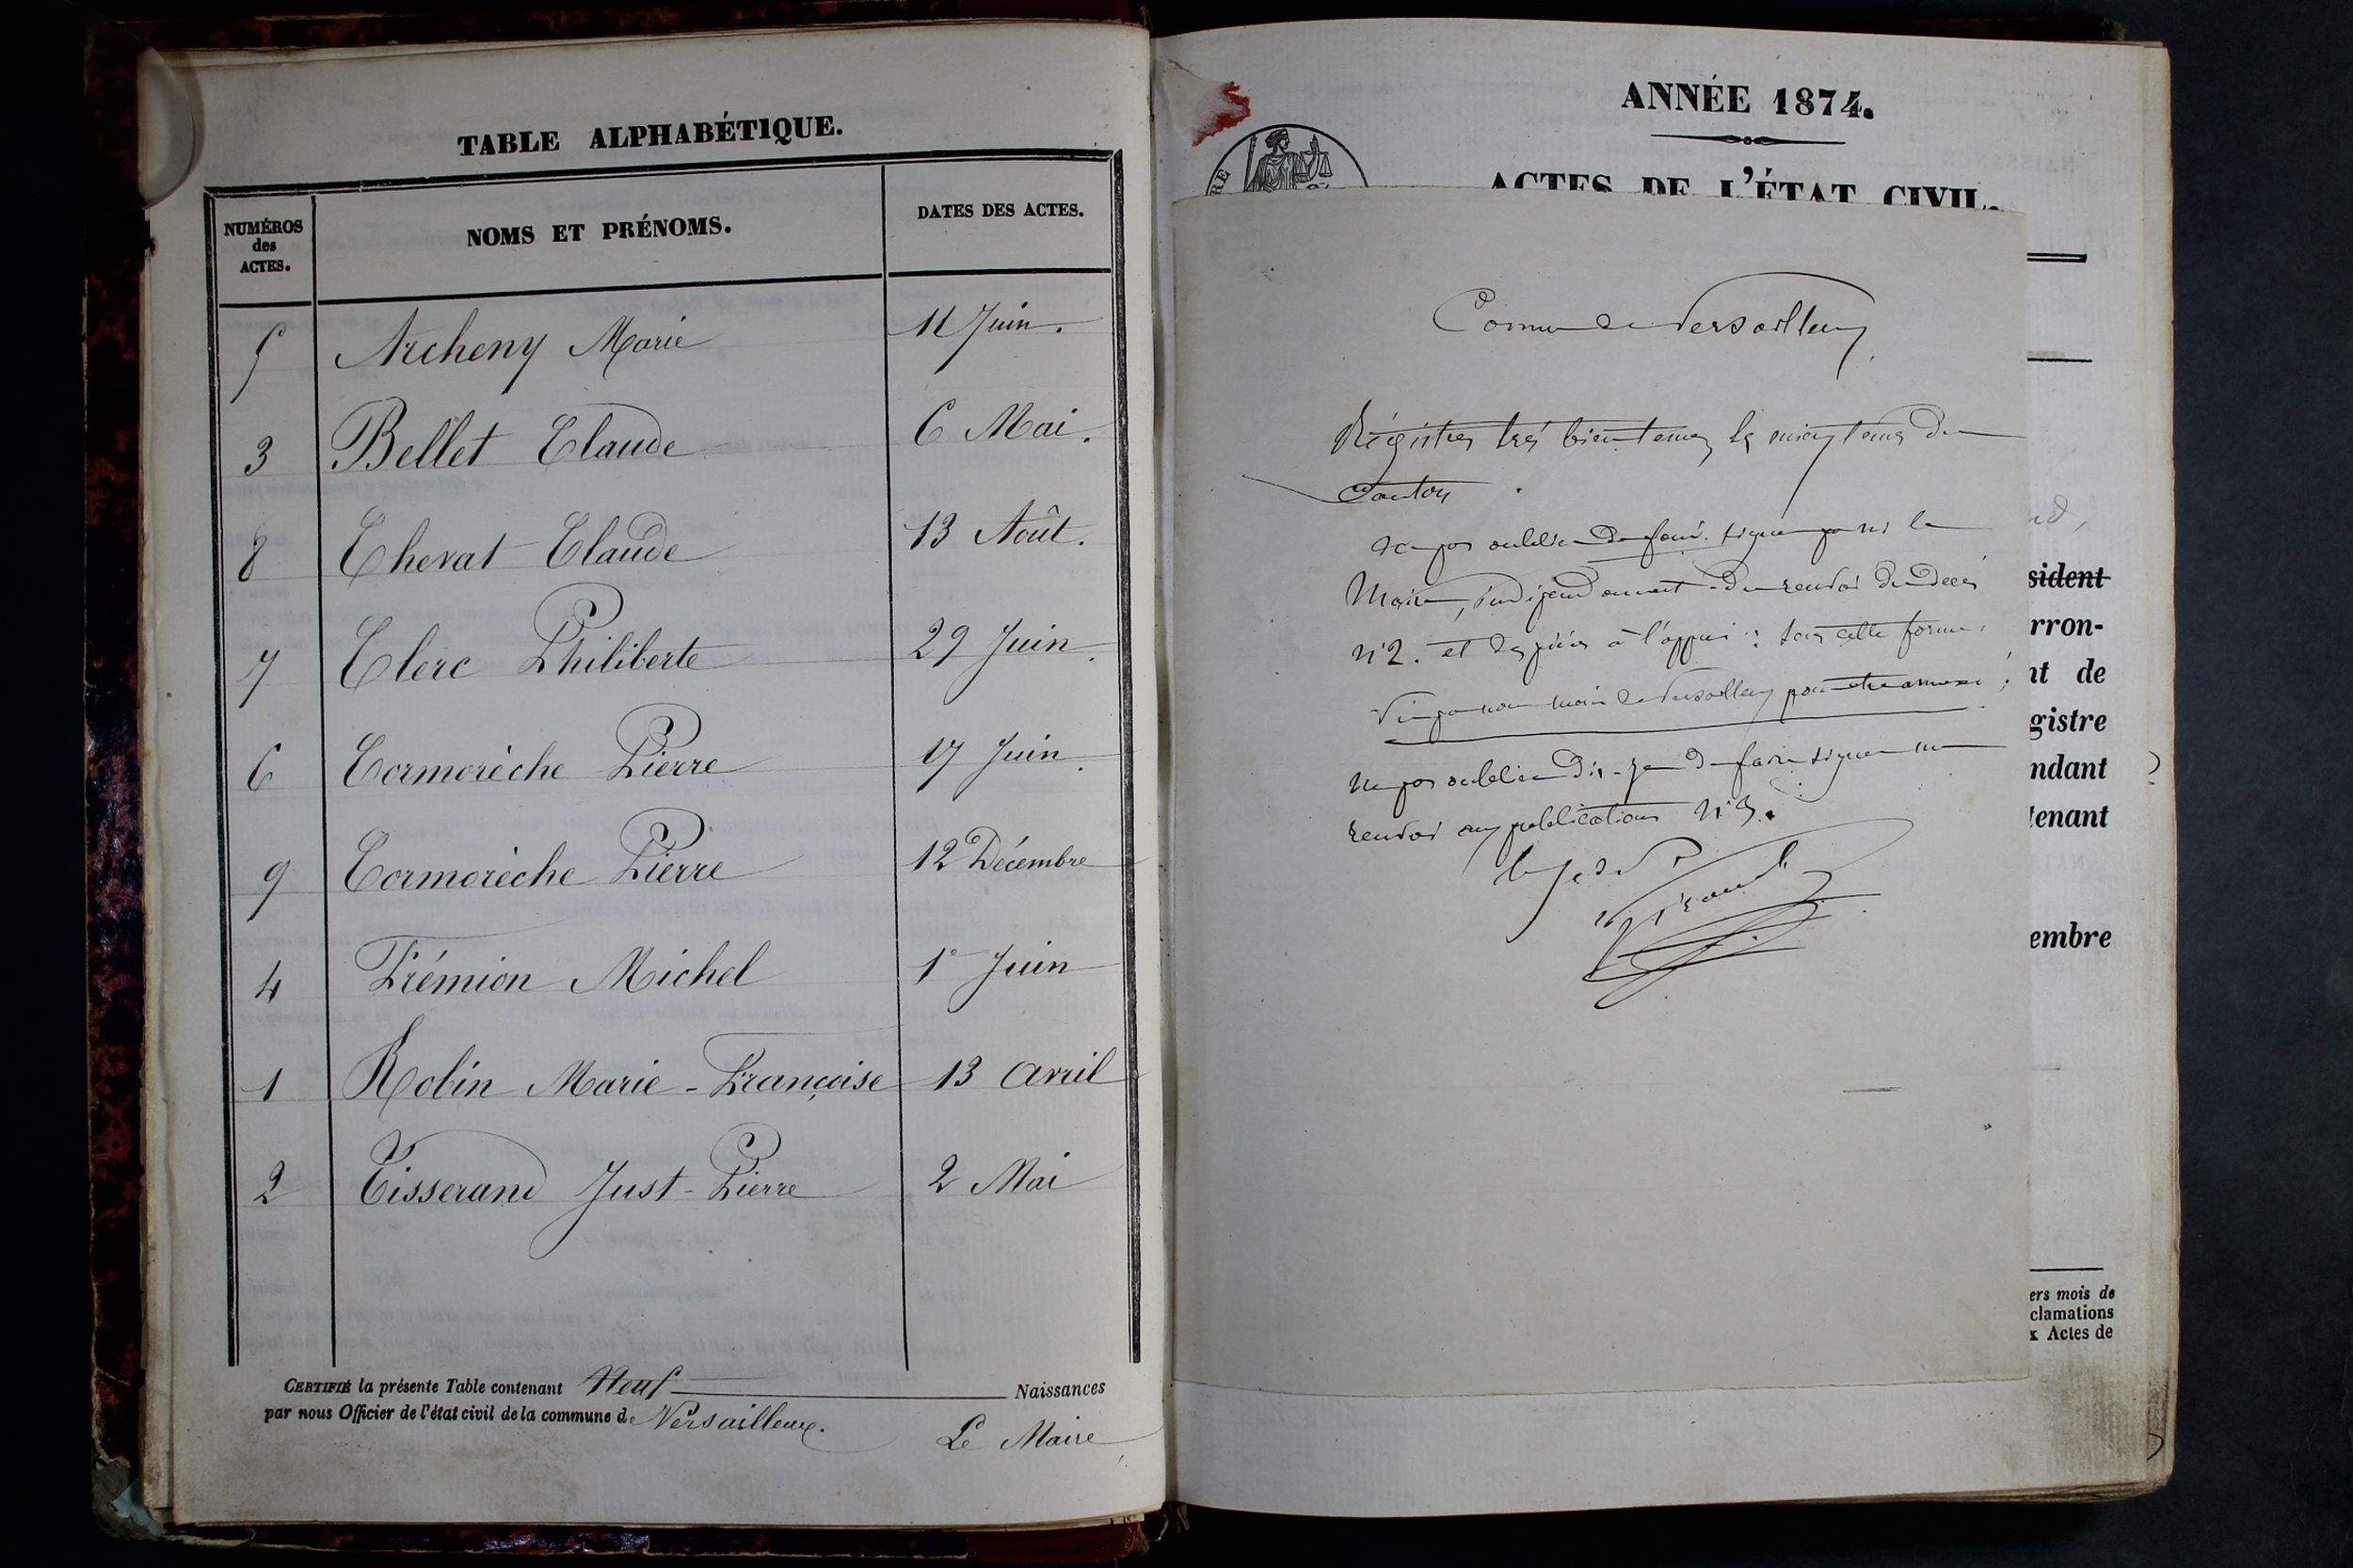 TABLE ALPHABÉTIQUE.
NUMÉROS des ACTES.
NOMS ET PRÉNOMS.
DATES DES ACTES.
5 Archeny Marie 11 Juin.
3 Bellet Claude 6 Mai.
8 Chevat Claude 13 Août.
7 Clerc Philiberte 29 Juin.
6 Cormorèche Pierre 17 Juin.
9 Cormorèche Pierre 12 Décembre
4 Prémion Michel 1er Juin
1 Robin Marie-Françoise 13 Avril
2 Tisserand Just-Pierre 2 Mai
CERTIFIÉ la présente Table contenant Neuf Naissances
par nous Officier de l'état civil de la commune de Versailleux.
Le Maire
ANNÉE 1874.
ACTES DE L'ÉTAT CIVIL.
RE
Commune de Versailleux
Régistres très bien tenus, les mieux tenus du
Canton.
ne pas oublier de faire signer par le
Maire, indépendamment du renvoi du décès
n°2. et des pièces à l'appui : sous cette forme.
Vu par nous maire de Versailleux pour être annexé ;
ne pas oublier de faire signer un
renvoi aux publications n°3.
sident
rron-
nt de
gistre
ndant
tenant
embre
ers mois de
clamations
x Actes de